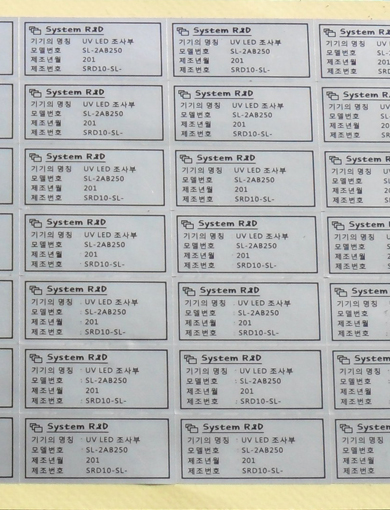 System R&D
기기의 명칭 : UV LED 조사부
모델번호 : SL-2AB250
제조년월 : 201
제조번호 : SRD10-SL-
System R&D
기기의 명칭 : UV LED 조사부
모델번호 : SL-2AB250
제조년월 : 201
제조번호 : SRD10-SL-
System
기기의 명칭 : UV LED
모델번호
제조년월
제조번호
System R&D
기기의 명칭 : UV LED 조사부
모델번호 : SL-2AB250
제조년월 : 201
제조번호 : SRD10-SL-
System R&D
기기의 명칭 : UV LED 조사부
모델번호 : SL-2AB250
제조년월 : 201
제조번호 : SRD10-SL-
System
기기의 명칭 : UV
모델번호
제조년월
제조번호
System R&D
기기의 명칭 : UV LED 조사부
모델번호 : SL-2AB250
제조년월 : 201
제조번호 : SRD10-SL-
System R&D
기기의 명칭 : UV LED 조사부
모델번호 : SL-2AB250
제조년월 : 201
제조번호 : SRD10-SL-
System
기기의 명칭 : UV
모델번호
제조년월
제조번호
System R&D
기기의 명칭 : UV LED 조사부
모델번호 : SL-2AB250
제조년월 : 201
제조번호 : SRD10-SL-
System R&D
기기의 명칭 : UV LED 조사부
모델번호 : SL-2AB250
제조년월 : 201
제조번호 : SRD10-SL-
System
기기의 명칭
모델번호
제조년월
제조번호
System R&D
기기의 명칭 : UV LED 조사부
모델번호 : SL-2AB250
제조년월 : 201
제조번호 : SRD10-SL-
System R&D
기기의 명칭 : UV LED 조사부
모델번호 : SL-2AB250
제조년월 : 201
제조번호 : SRD10-SL-
System
기기의 명칭
모델번호
제조년월
제조번호
System R&D
기기의 명칭 : UV LED 조사부
모델번호 : SL-2AB250
제조년월 : 201
제조번호 : SRD10-SL-
System R&D
기기의 명칭 : UV LED 조사부
모델번호 : SL-2AB250
제조년월 : 201
제조번호 : SRD10-SL-
System
기기의 명칭
모델번호
제조년월
제조번호
System R&D
기기의 명칭 : UV LED 조사부
모델번호 : SL-2AB250
제조년월 : 201
제조번호 : SRD10-SL-
System R&D
기기의 명칭 : UV LED 조사부
모델번호 : SL-2AB250
제조년월 : 201
제조번호 : SRD10-SL-
기기의 명칭
모델번호
제조년월
제조번호